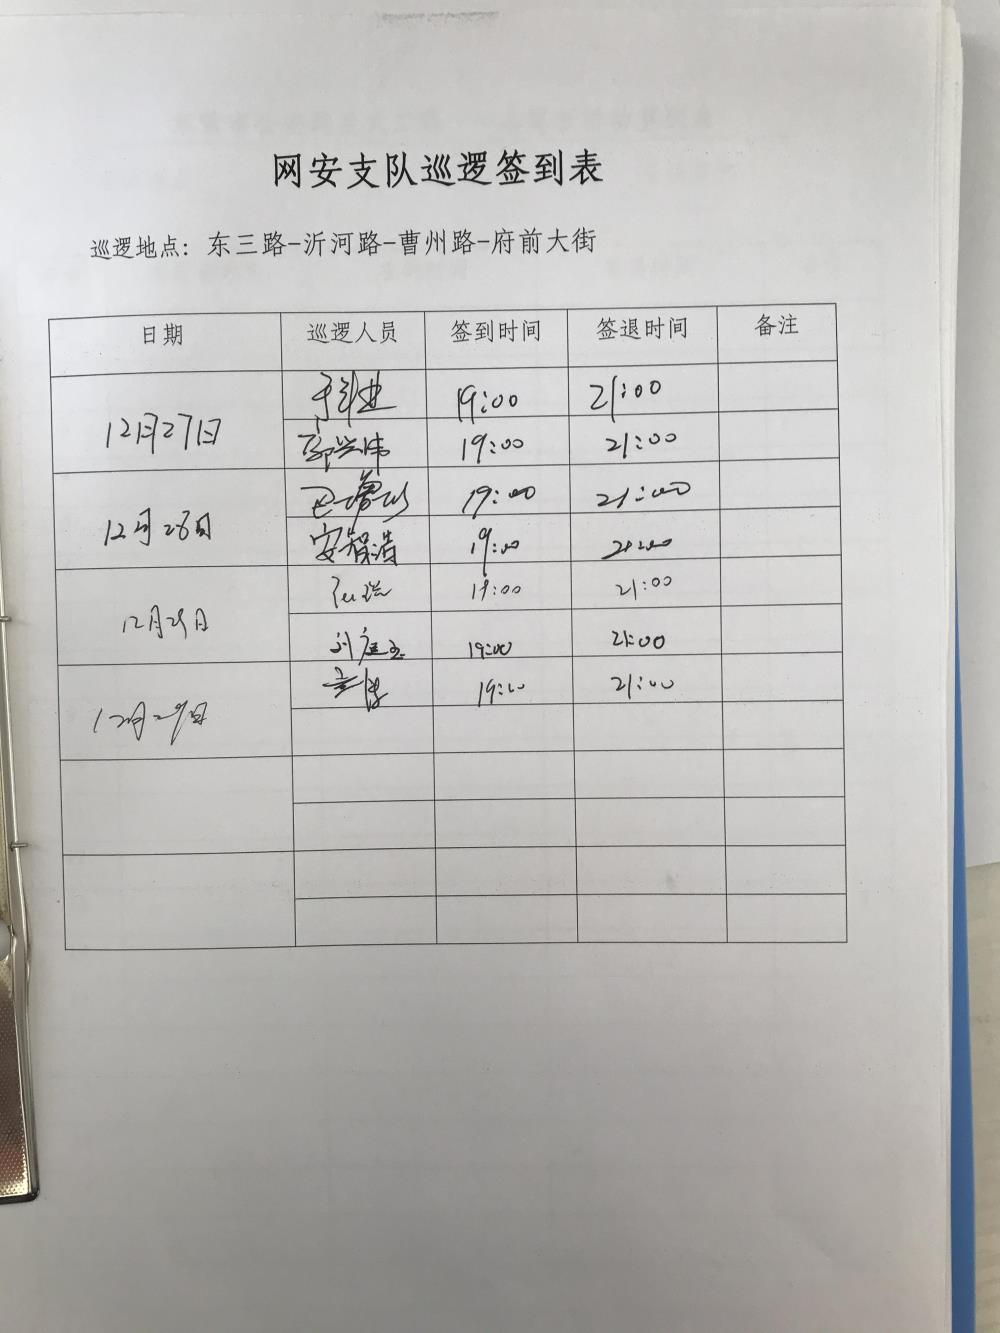 网安支队巡逻签到表
巡逻地点：东三路-沂河路-曹州路-府前大街
日期 巡逻人员 签到时间 签退时间 备注
12月27日 19:00 21:00
郭兴伟 19:00 21:00
12月28日 19:00 21:00
安智浩 19:00 21:00
12月29日 19:00 21:00
19:00 21:00
12月29日 19:00 21:00